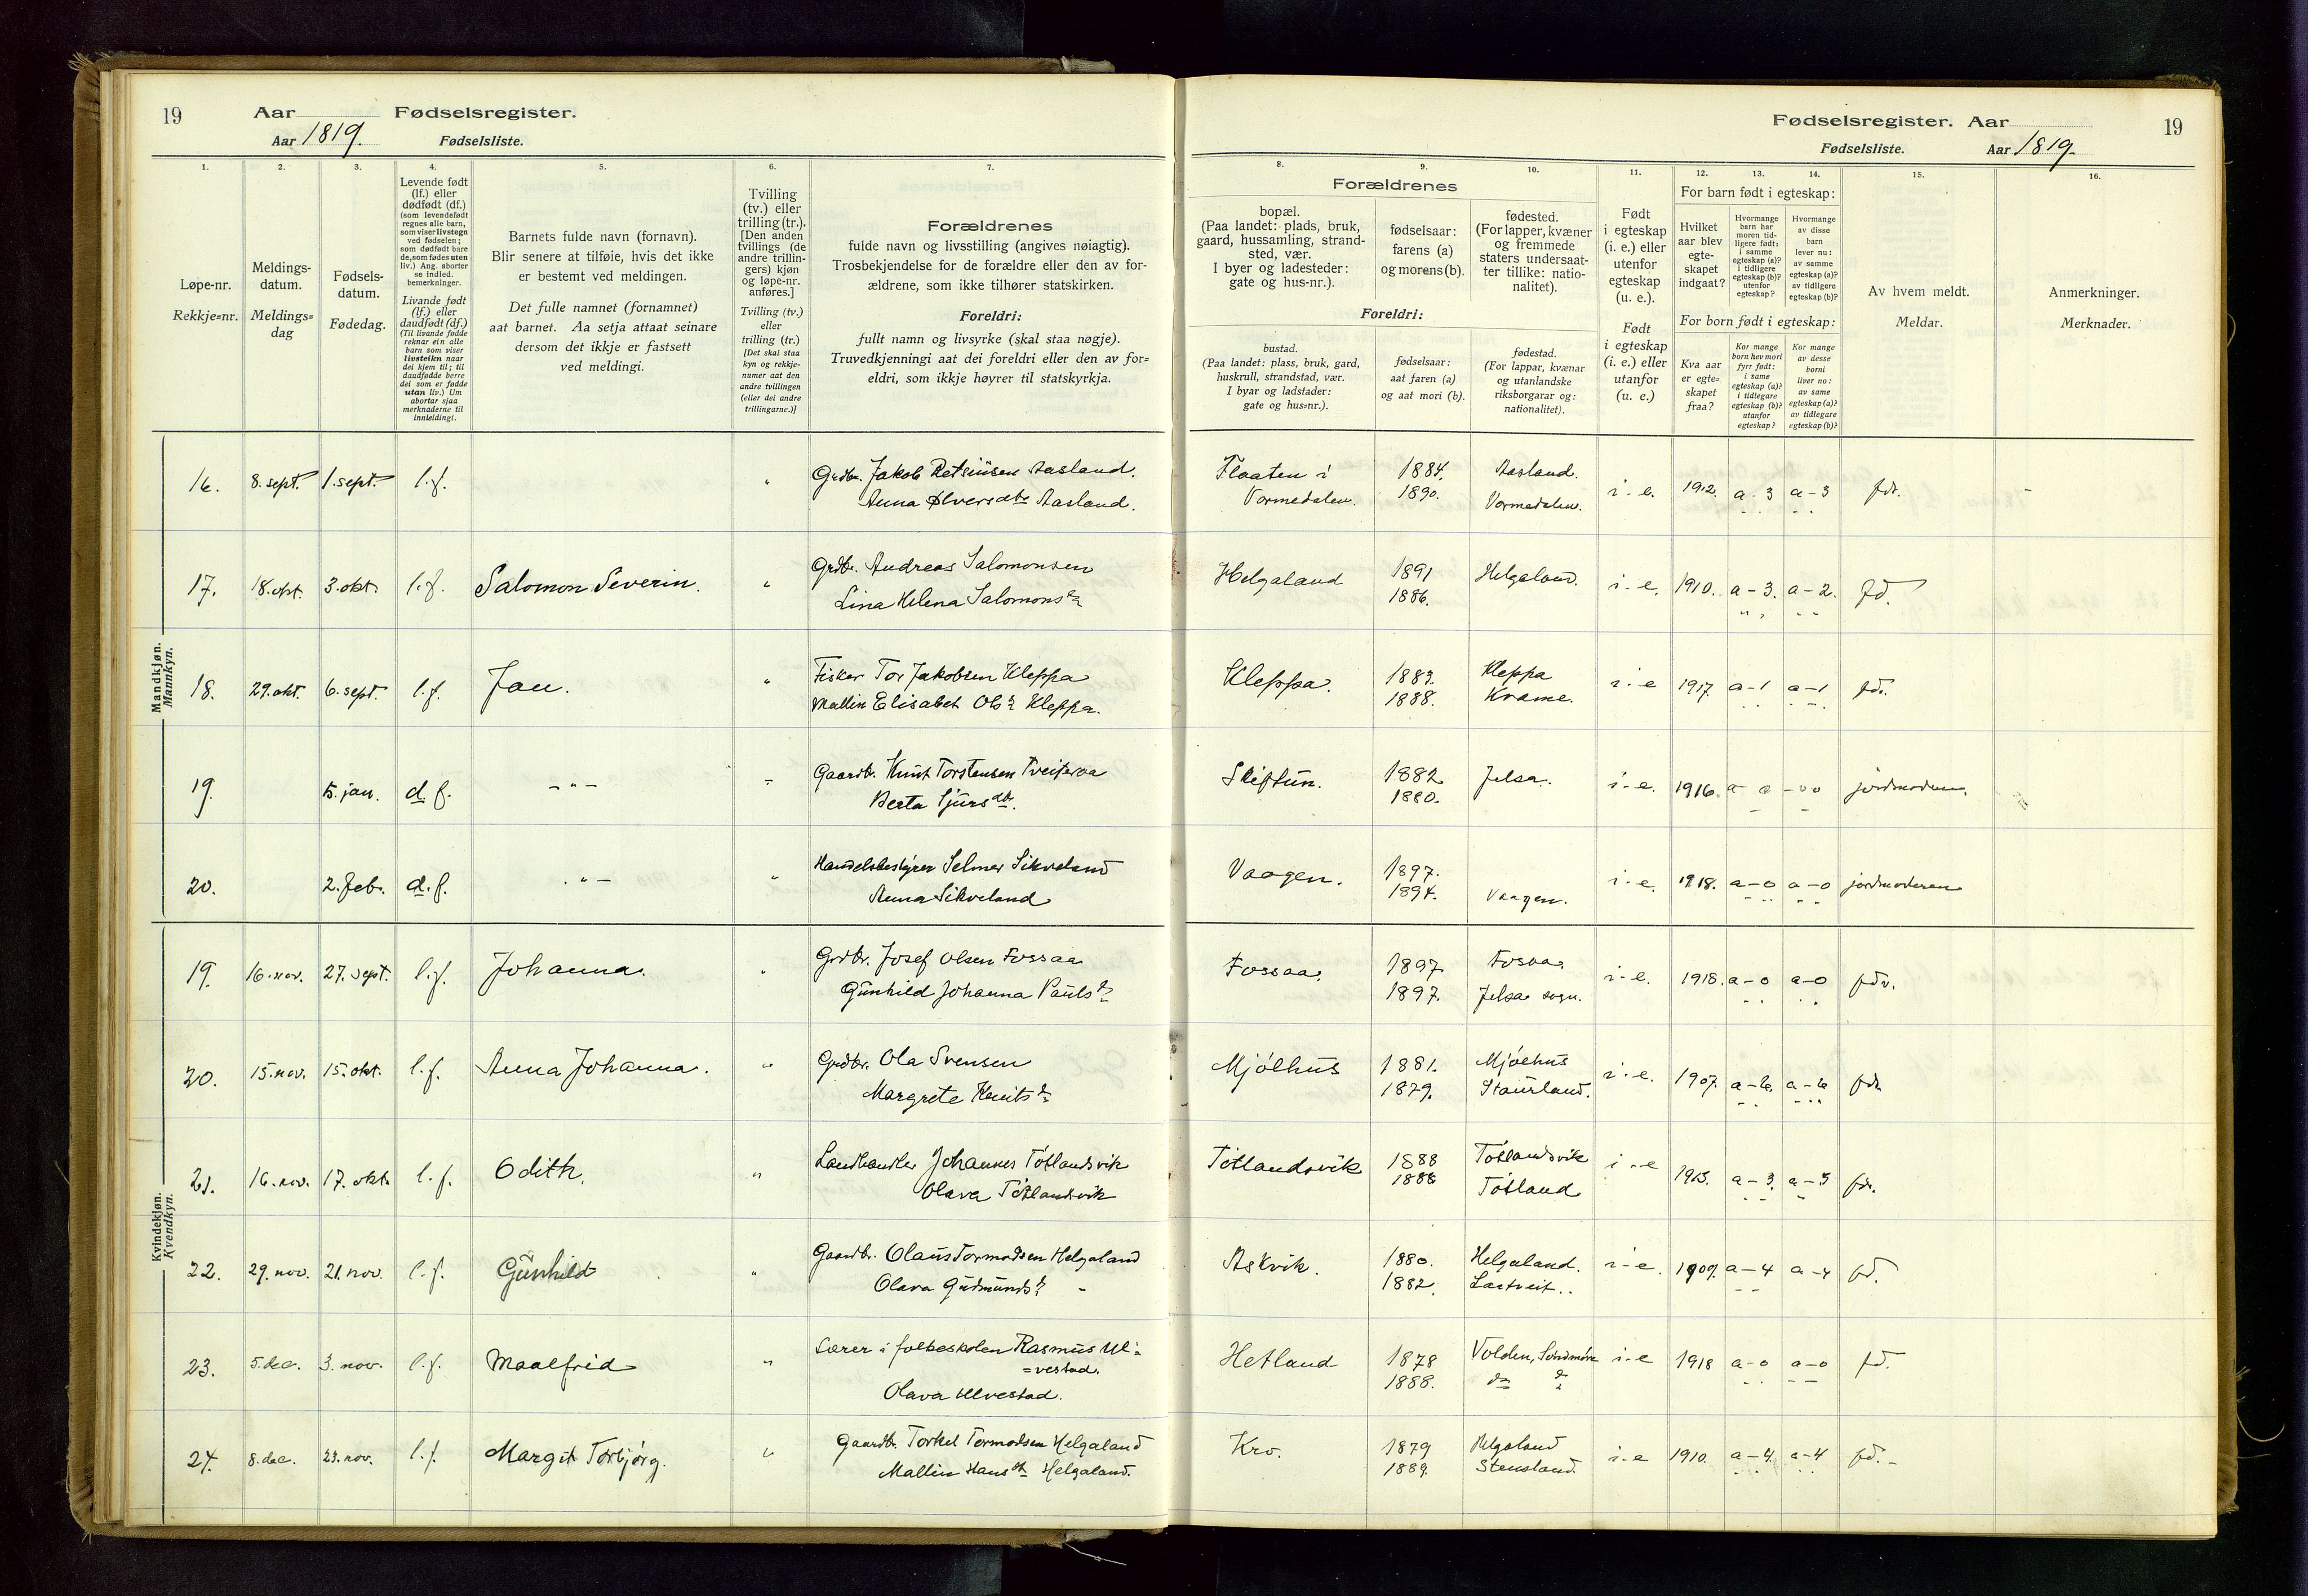 19 Aar Fødselsregister.
Aar 1819. Fødselsliste.
Fødselsregister. Aar 19
Fødselsliste. Aar 1819.
1.
Løpe-nr.
Rekkje=nr.
2.
Meldings-
datum.
Meldings=
dag
3.
Fødsels-
datum.
Fødedag.
4.
Levende født
(lf.) eller
dødfødt (df.)
(som levendefødt
regnes alle barn,
som viser livstegn
ved fødselen;
som dødfødt bare
de, som fødes uten
liv.) Ang. aborter
se indled.
bemerkninger.
Livande født
(lf.) eller
daudfødt (df.)
(Til livande fødde
reknar ein alle
barn som viser
livsteikn naar
dei kjem til; til
daudfødde berre
dei som er fødde
utan liv.) Um
abortar sjaa
merknaderne til
innleidingi.
5.
Barnets fulde navn (fornavn).
Blir senere at tilføie, hvis det ikke
er bestemt ved meldingen.
Det fulle namnet (fornamnet)
aat barnet. Aa setja attaat seinare
dersom det ikkje er fastsett
ved meldingi.
6.
Tvilling
(tv.) eller
trilling (tr.).
[Den anden
tvillings (de
andre trillin-
gers) kjøn
og løpe-nr.
anføres.]
Tvilling (tv.)
eller
trilling (tr.)
[Det skal staa
kyn og rekkje-
numer aat den
andre tvillingen
(eller dei andre
trillingarne.)]
7.
Forældrenes
fulde navn og livsstilling (angives nøiagtig).
Trosbekjendelse for de forældre eller den av for-
ældrene, som ikke tilhører statskirken.
Foreldri:
fullt namn og livsyrke (skal staa nøgje).
Truvedkjenningi aat dei foreldri eller den av for=
eldri, som ikkje høyrer til statskyrkja.
8. 9. 10.
Forældrenes
bopæl.
(Paa landet: plads, bruk,
gaard, hussamling, strand-
sted, vær.
I byer og ladesteder:
gate og hus-nr.).
fødselsaar:
farens (a)
og morens (b).
fødested.
(For lapper, kvæner
og fremmede
staters undersaat-
ter tillike: natio-
nalitet).
Foreldri:
bustad.
(Paa landet: plass, bruk, gard,
huskrull, strandstad, vær.
I byar og ladstader:
gate og hus=nr.).
fødselsaar:
aat faren (a)
og aat mori (b).
fødestad.
(For lappar, kvænar
og utanlandske
riksborgarar og:
nationalitet).
11.
Født
i egteskap
(i. e.) eller
utenfor
egteskap
(u. e.).
Født
i egteskap
(i. e.) eller
utanfor
(u. e.)
12. 13. 14.
For barn født i egteskap:
Hvilket
aar blev
egte-
skapet
indgaat?
Hvormange
barn har
moren tid-
ligere født:
i samme
egteskap (a)?
i tidligere
egteskap (b)?
utenfor
egteskap?
Hvormange
av disse
barn
lever nu:
av samme
egteskap (a)?
av tidligere
egteskap (b)?
For born født i egteskap:
Kva aar
er egte=
skapet
fraa?
Kor mange
born hev mori
fyrr født:
i same
egteskap (a)?
i tidlegare
egteskap (b)?
utanfor
egteskap?
Kor mange
av desse
borni
liver no:
av same
egteskap (a)?
av tidlegare
egteskap (b)?
15.
Av hvem meldt.
Meldar.
16.
Anmerkninger.
Merknader.
Mandkjøn.
Mannkyn.
16. 8. sept. 1. sept. l.f. Grdbr. Jakob Aasland.
Anna Ølversdtr Aasland.
Flaaten i Vormedalen. 1884. 1890. Aasland. Vormedalen. i-e. 1912. a-3 a-3 fdr.
17. 18. okt. 3. okt. l.f. Salomon Severin. Grdbr. Andreas Salomonsen
Lina Helena Salomonsdtr
Helgaland 1891 1886. Helgaland. i-e. 1910. a-3. a-2. fd.
18. 29. okt. 6. sept. l.f. Jan. Fisker Tor Jakobsen Kleppa
Mallin Elisabet Olsdtr Kleppa.
Kleppa. 1883. 1888. Kleppa Kvame. i-e 1917. a-1 a-1 fdr.
19. 5. jan. d.f. -"- Gaardbr. Knut Torstensen Tveiteraa
Berta Sjursdtr.
Skiftun. 1882. 1880. Jelsa. i-e. 1916. jordmoderen.
20. 2. feb. d.f. -"- Handelsbestyrer Selmer Sikveland
Anna Sikveland
Vaagen. 1897. 1894. Vaagen. i-e. 1918. a-0 a-0 jordmoderen
Kvindekjøn.
Kvendkyn.
19. 16. nov. 27. sept. l.f. Johanna. Grdbr. Josef Olsen Fossaa
Gunhild Johanna Paulsdtr
Fossaa. 1897. 1897. Fosaa. Jelsa sogn. i-e. 1918. a-0 a-0 fdr.
20. 15. nov. 15. okt. l.f. Anna Johanna. Grdbr. Ola Svensen
Margrete Knutsdtr
Mjølhus 1881. 1879. Mjølhus Staurland. i-e. 1907. a-6. a-6 fdr.
21. 16. nov. 17. okt. l.f. Odith. Landhandler Johannes Tøtlandsvik
Olava Tøtlandsvik
Tøtlandsvik 1888 1888 Tøtlandsvik Tøtland i-e 1913. a-3. a-3 fdr.
22. 29. nov. 21. nov. l.f. Gunhild Gaardbr. Olaus Tormodsen Helgaland
Olava Gudmundsdtr -
Askvik. 1880. 1882. Helgaland. i-e. 1909. a-4 a-4 fd.
23. 5. dec. 3. nov. l.f. Maalfrid Lærer i folkeskolen Rasmus Ul=
=vestad.
Olava Ulvestad.
Hetland 1878 1888. Volden, Søndmøre do do i-e 1918 a-0 a-0 fd.
24. 8. dec. 23. nov. l.f. Margit Torbjørg. Gaardbr. Torkel Tormodsen Helgaland
Mallin Hansdtr Helgaland.
Kro. 1879 1889. Helgaland Stensland. i-e 1910. a-4. a-4 fd.-